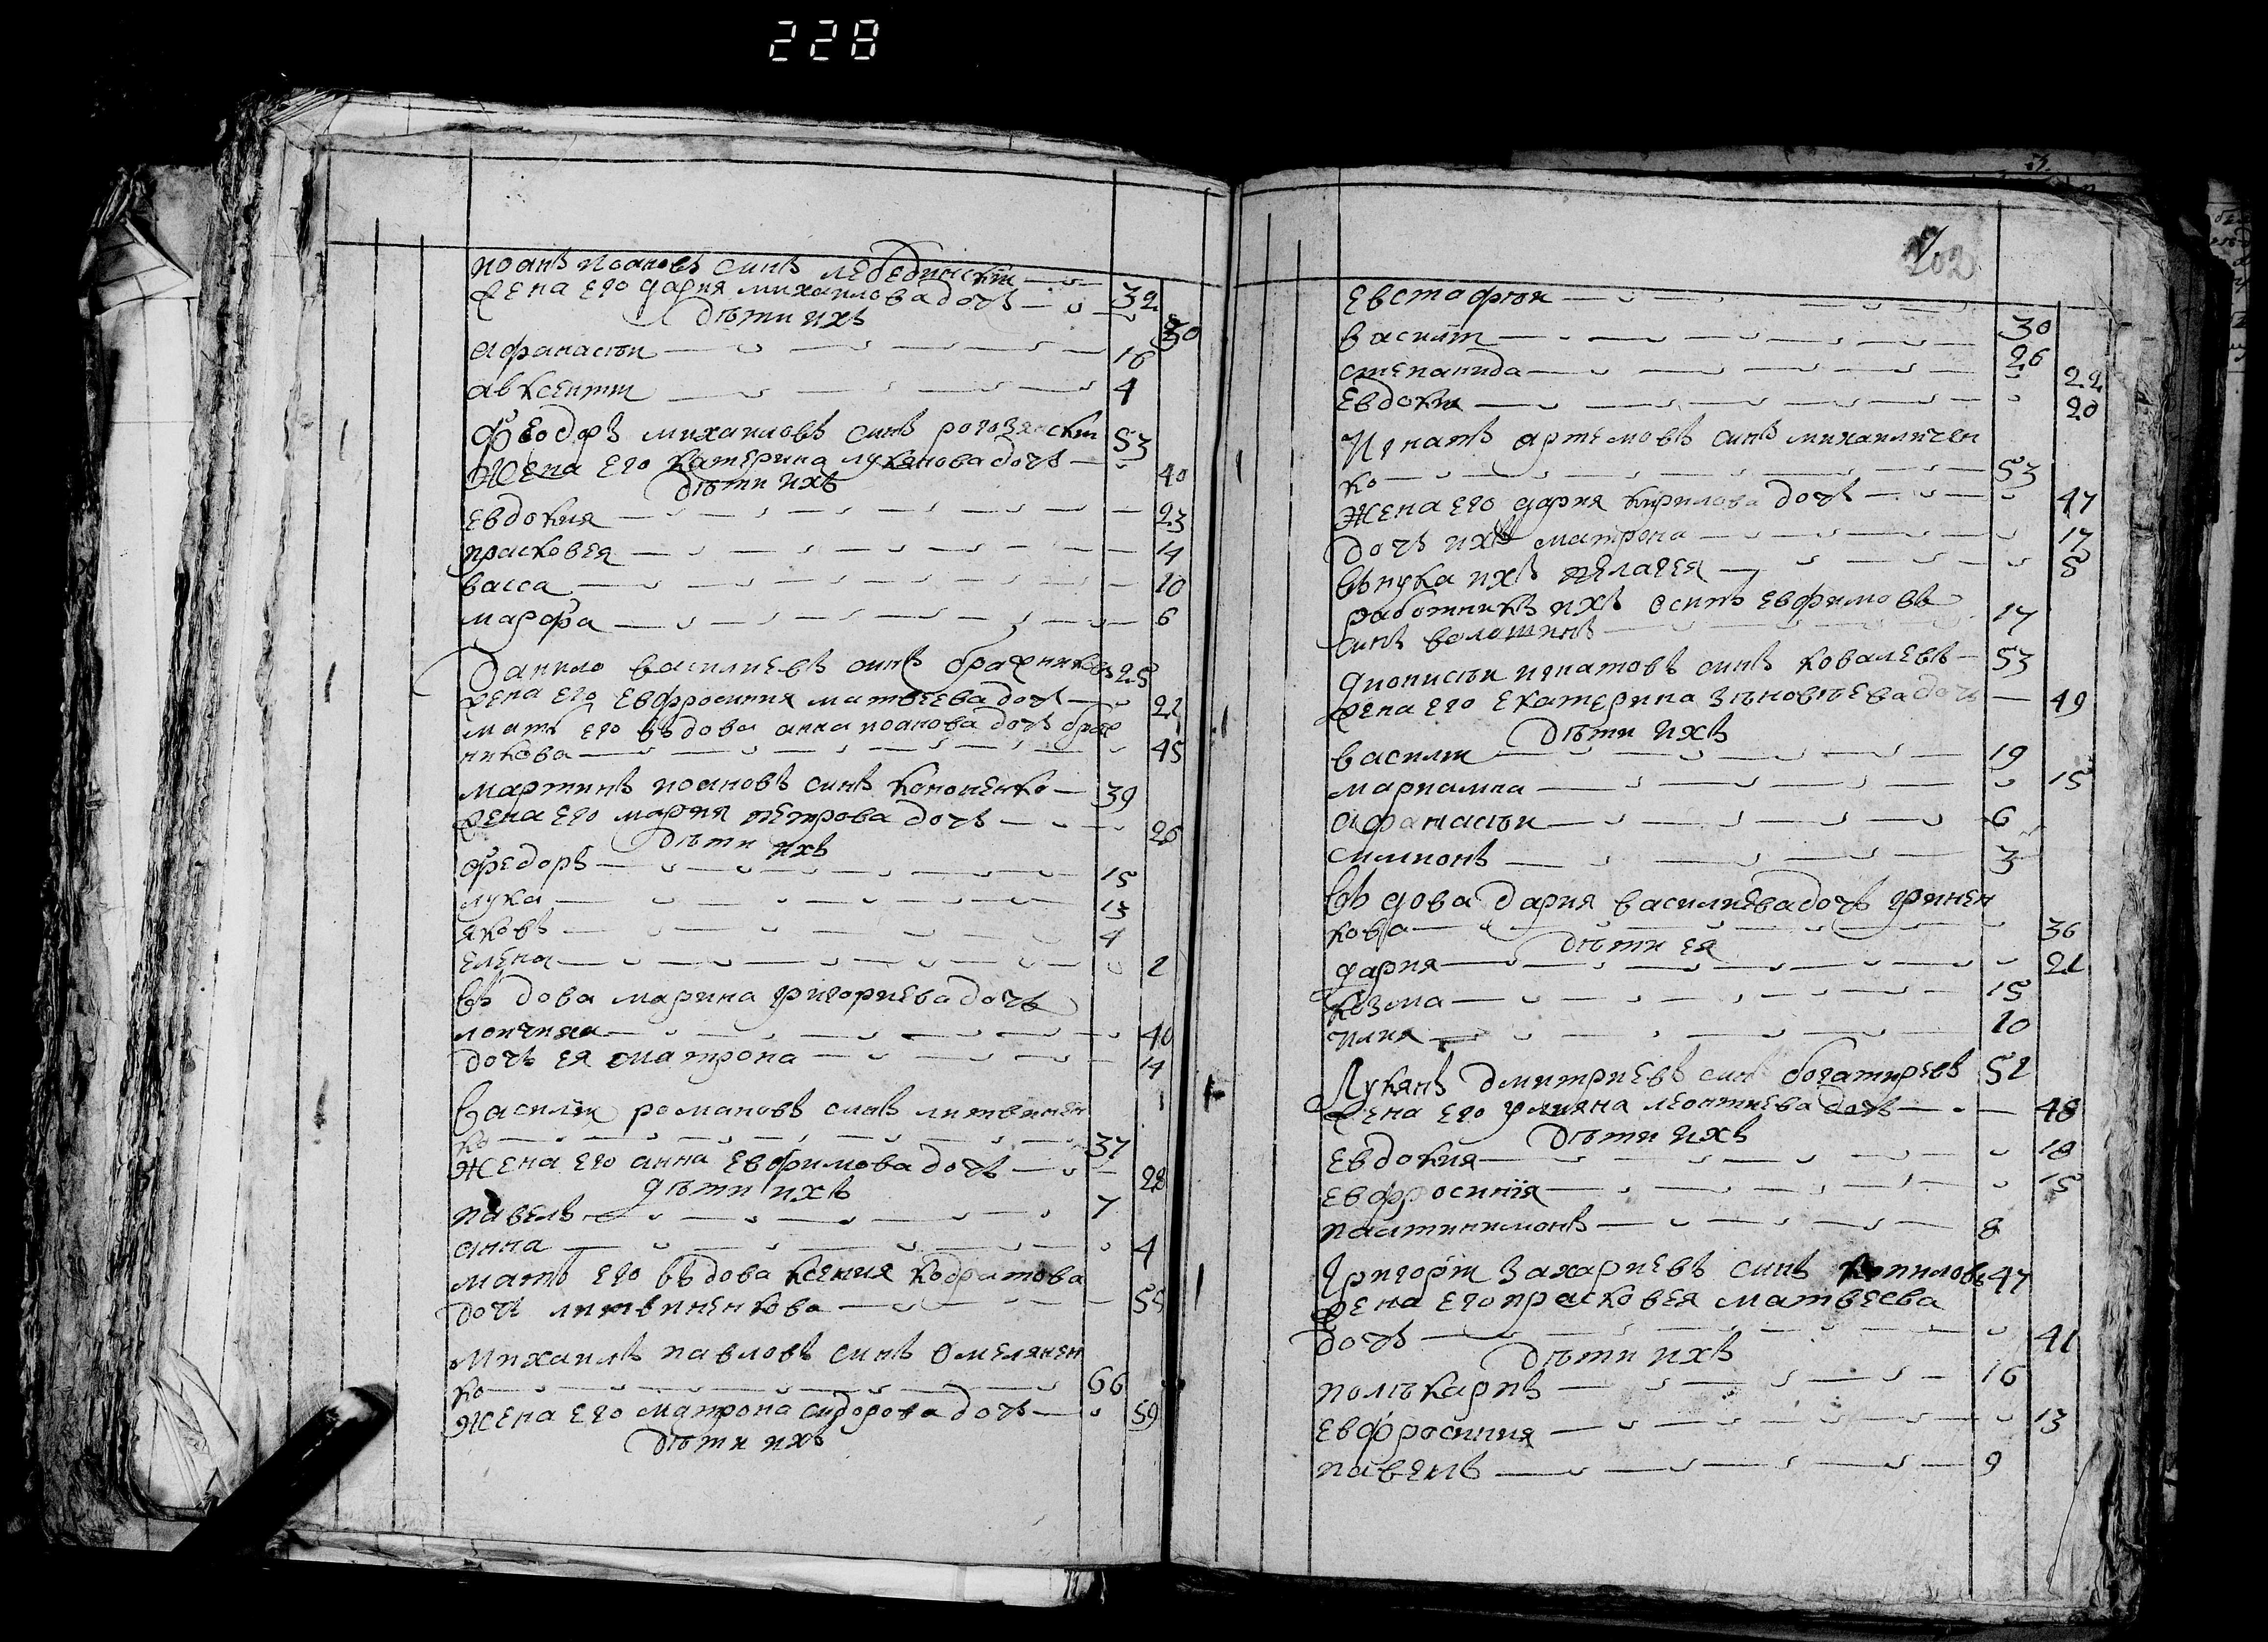 228
иоанъ иоановъ синъ лебединскїи 32
жена его дария михаилова дочъ 30
дѣти ихъ
афанасѣи 16
авксентїи 4
Феодоръ михаиловъ синъ рогозянскїи 53
Жена его катерина лукянова дочъ 40
дѣти ихъ
евдокия 23
прасковея 14
васса 10
марфа 6
Данило василиевъ синъ бражниковъ 25
жена его евфросиния матвеева дочъ 22
мать его въдова анна иоанова дочъ браж
никова 45
мартинъ иоановъ синъ кононенко 39
жена его мария петрова дочъ 26
дѣти ихъ
федоръ 15
лука 13
яковъ 4
елена 2
въдова марина григориева дочъ
40
дочъ ея матрона 14
василїи романовъ синъ литвинен
ко 37
Жена его анна евфимова дочъ 28
дѣти ихъ
павелъ 7
анна 4
мать его въдова ксения кодратова
дочъ литвиненкова 55
Михаилъ павловъ синъ омелянен
ко 66
Жена его матрона сидорова дочъ 59
дѣти ихъ
202
Евстафѣи 30
василїи 26
степанида 22
Евдокия 20
Игнатъ артемовъ синъ михаиличен
ко 53
Жена его дария кирилова дочъ 47
дочъ ихъ матрона 17
внука ихъ пелагея 5
работникъ ихъ осипъ евфимовъ
синъ волошинъ 17
дионисѣи игнатовъ синъ ковалевъ 53
жена его екатерина зѣновѣева дочъ 49
дѣти ихъ
василїи 19
мариамна 15
афанасѣи 6
симионъ 3
въдова дария василиева дочъ
кова 36
дѣти ея
дария 21
козма 15
илия 10
Лукянъ дмитриевъ синъ богатиревъ 52
жена его улияна леонтиева дочъ 48
дѣти ихъ
евдокия 18
евфросинїя 15
пантилимонъ 8
Григорїи Захариевъ синъ копиловъ 47
жена его прасковея матвеева
дочъ 41
дѣти ихъ
полѣкарпъ 16
евфросиния 13
павелъ 9